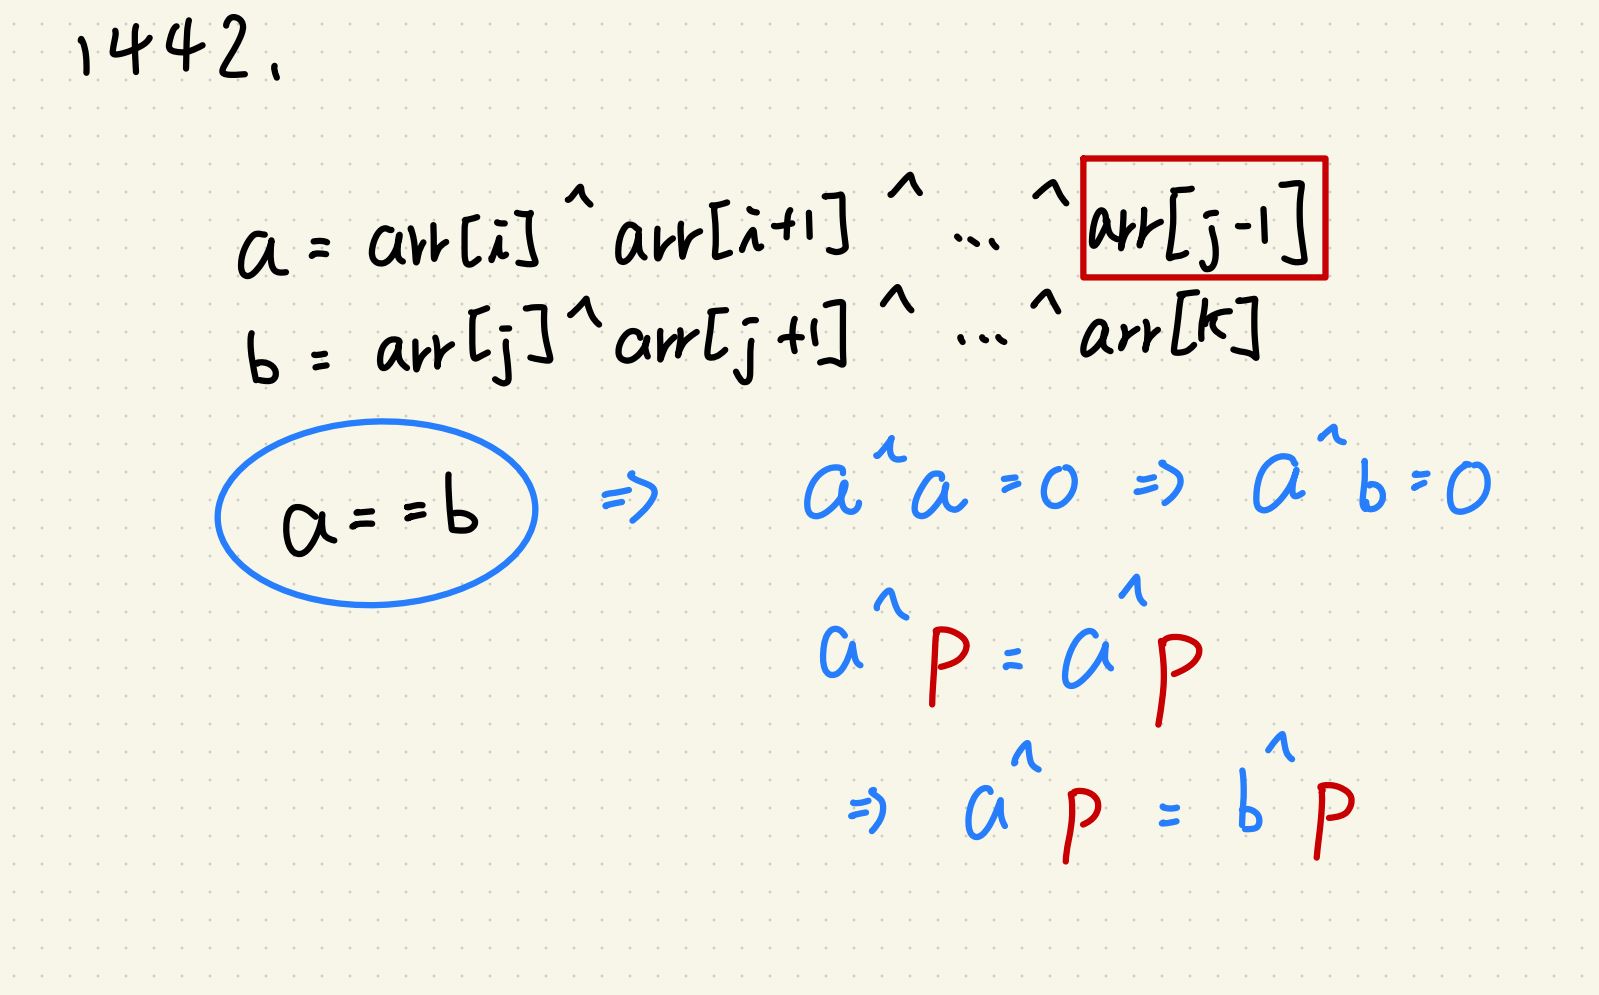 1442.
a = arr[i] ^ arr[i+1] ^ ... ^ arr[j-1]
b = arr[j] ^ arr[j+1] ^ ... ^ arr[k]
a == b ⇒ a ^ a = 0 ⇒ a ^ b = 0
a ^ p = a ^ p
⇒ a ^ p = b ^ p